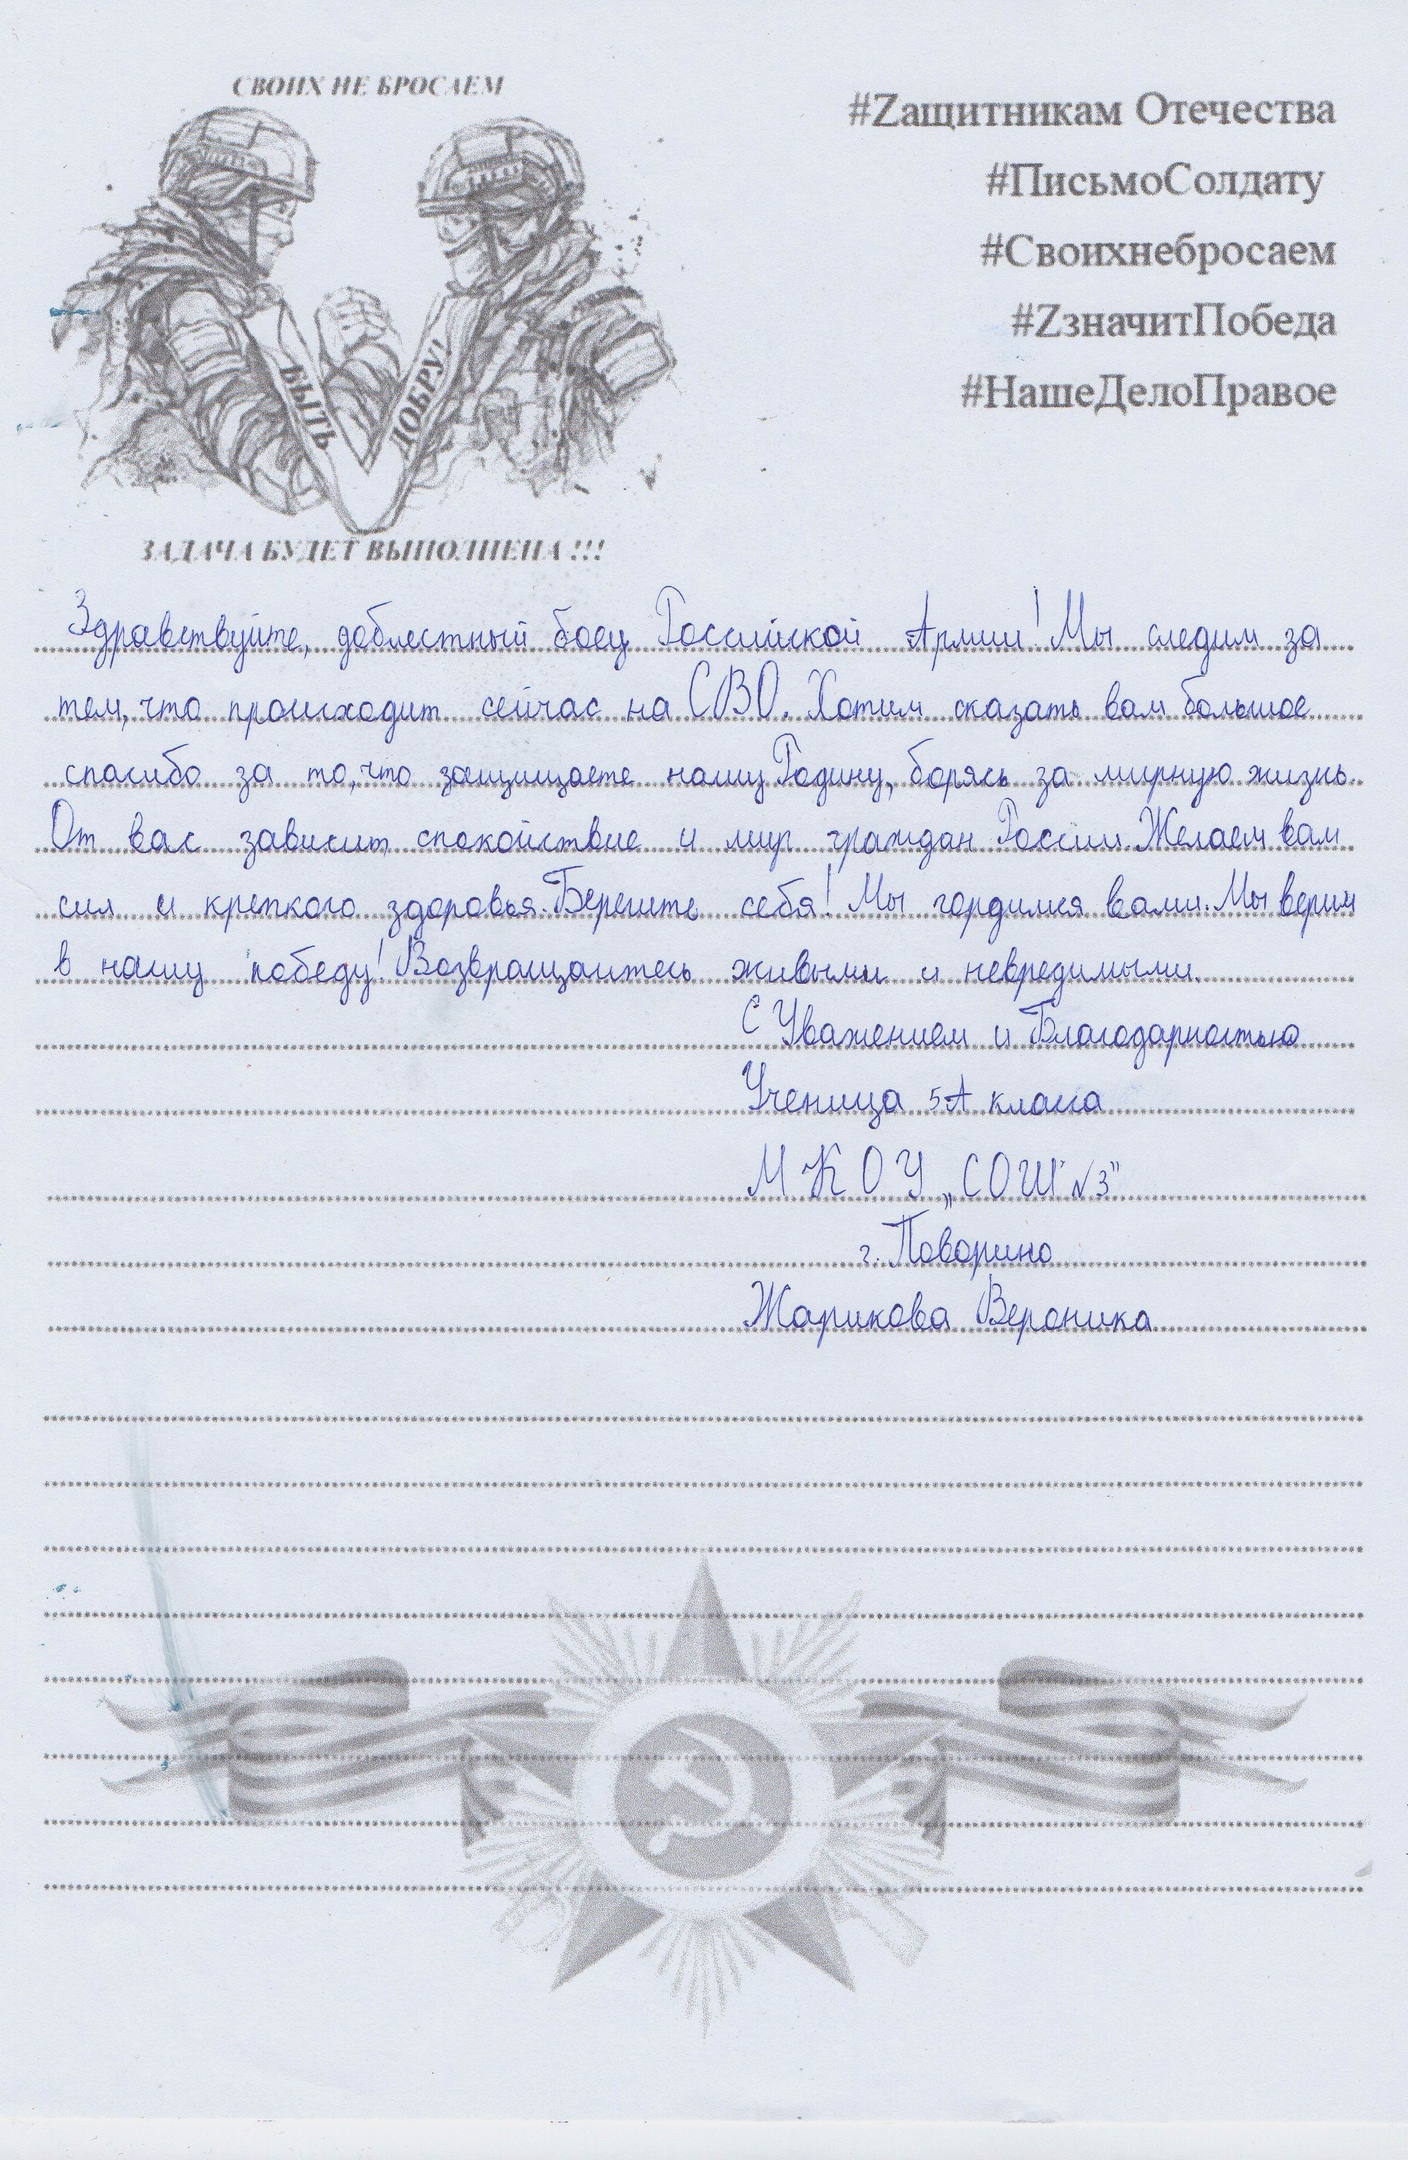 СВОИХ НЕ БРОСАЕМ
#Zащитникам Отечества
#ПисьмоСолдату
#Своихнебросаем
#ZзначитПобеда
#НашеДелоПравое
БЫТЬ ДОБРУ!
ЗАДАЧА БУДЕТ ВЫПОЛНЕНА !!!
Здравствуйте, доблестный боец Российской Армии! Мы следим за
тем, что происходит сейчас на СВО. Хотим сказать вам большое
спасибо за то, что защищаете нашу Родину, борясь за мирную жизнь.
От вас зависит спокойствие и мир граждан России. Желаем вам
сил и крепкого здоровья. Берегите себя! Мы гордимся вами. Мы верим
в нашу победу! Возвращайтесь живыми и невредимыми.
С Уважением и Благодарностью
Ученица 5А класса
МКОУ „СОШ №3"
г. Поворино
Жарикова Вероника